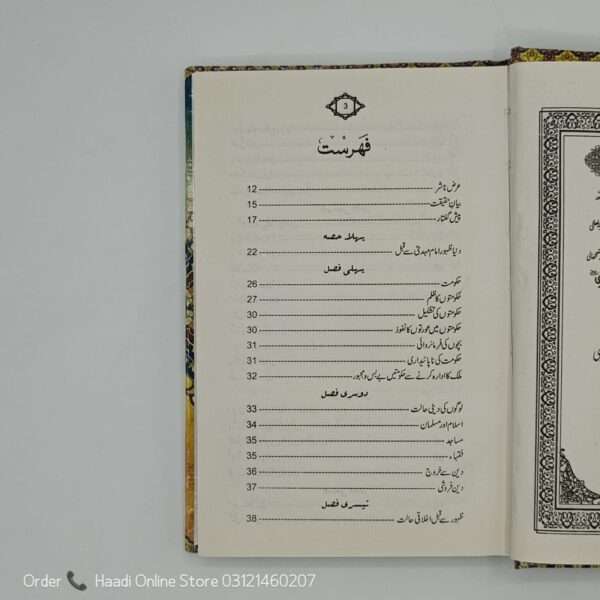 3
فہرست
عرض ناشر 12
بیان حقیقت 15
پیش گفتار 17
پہلا حصہ
دنیا ظہور امام مہدیؑ سے قبل 22
پہلی فصل
حکومت 26
حکومتوں کا ظلم 27
حکومتوں کی تشکیل 30
حکومتوں میں عورتوں کا نفوذ 30
بچوں کی فرمانروائی 31
حکومت کی ناپائیداری 31
ملک کا ادارہ کرنے سے حکومتیں بے بس و مجبور 32
دوسری فصل
لوگوں کی دینی حالت 33
اسلام اور مسلمان 34
مساجد 35
فقہاء 35
دین سے خروج 36
دین فروشی 37
تیسری فصل
ظہور سے قبل اخلاقی حالت 38
Order Haadi Online Store 03121460207